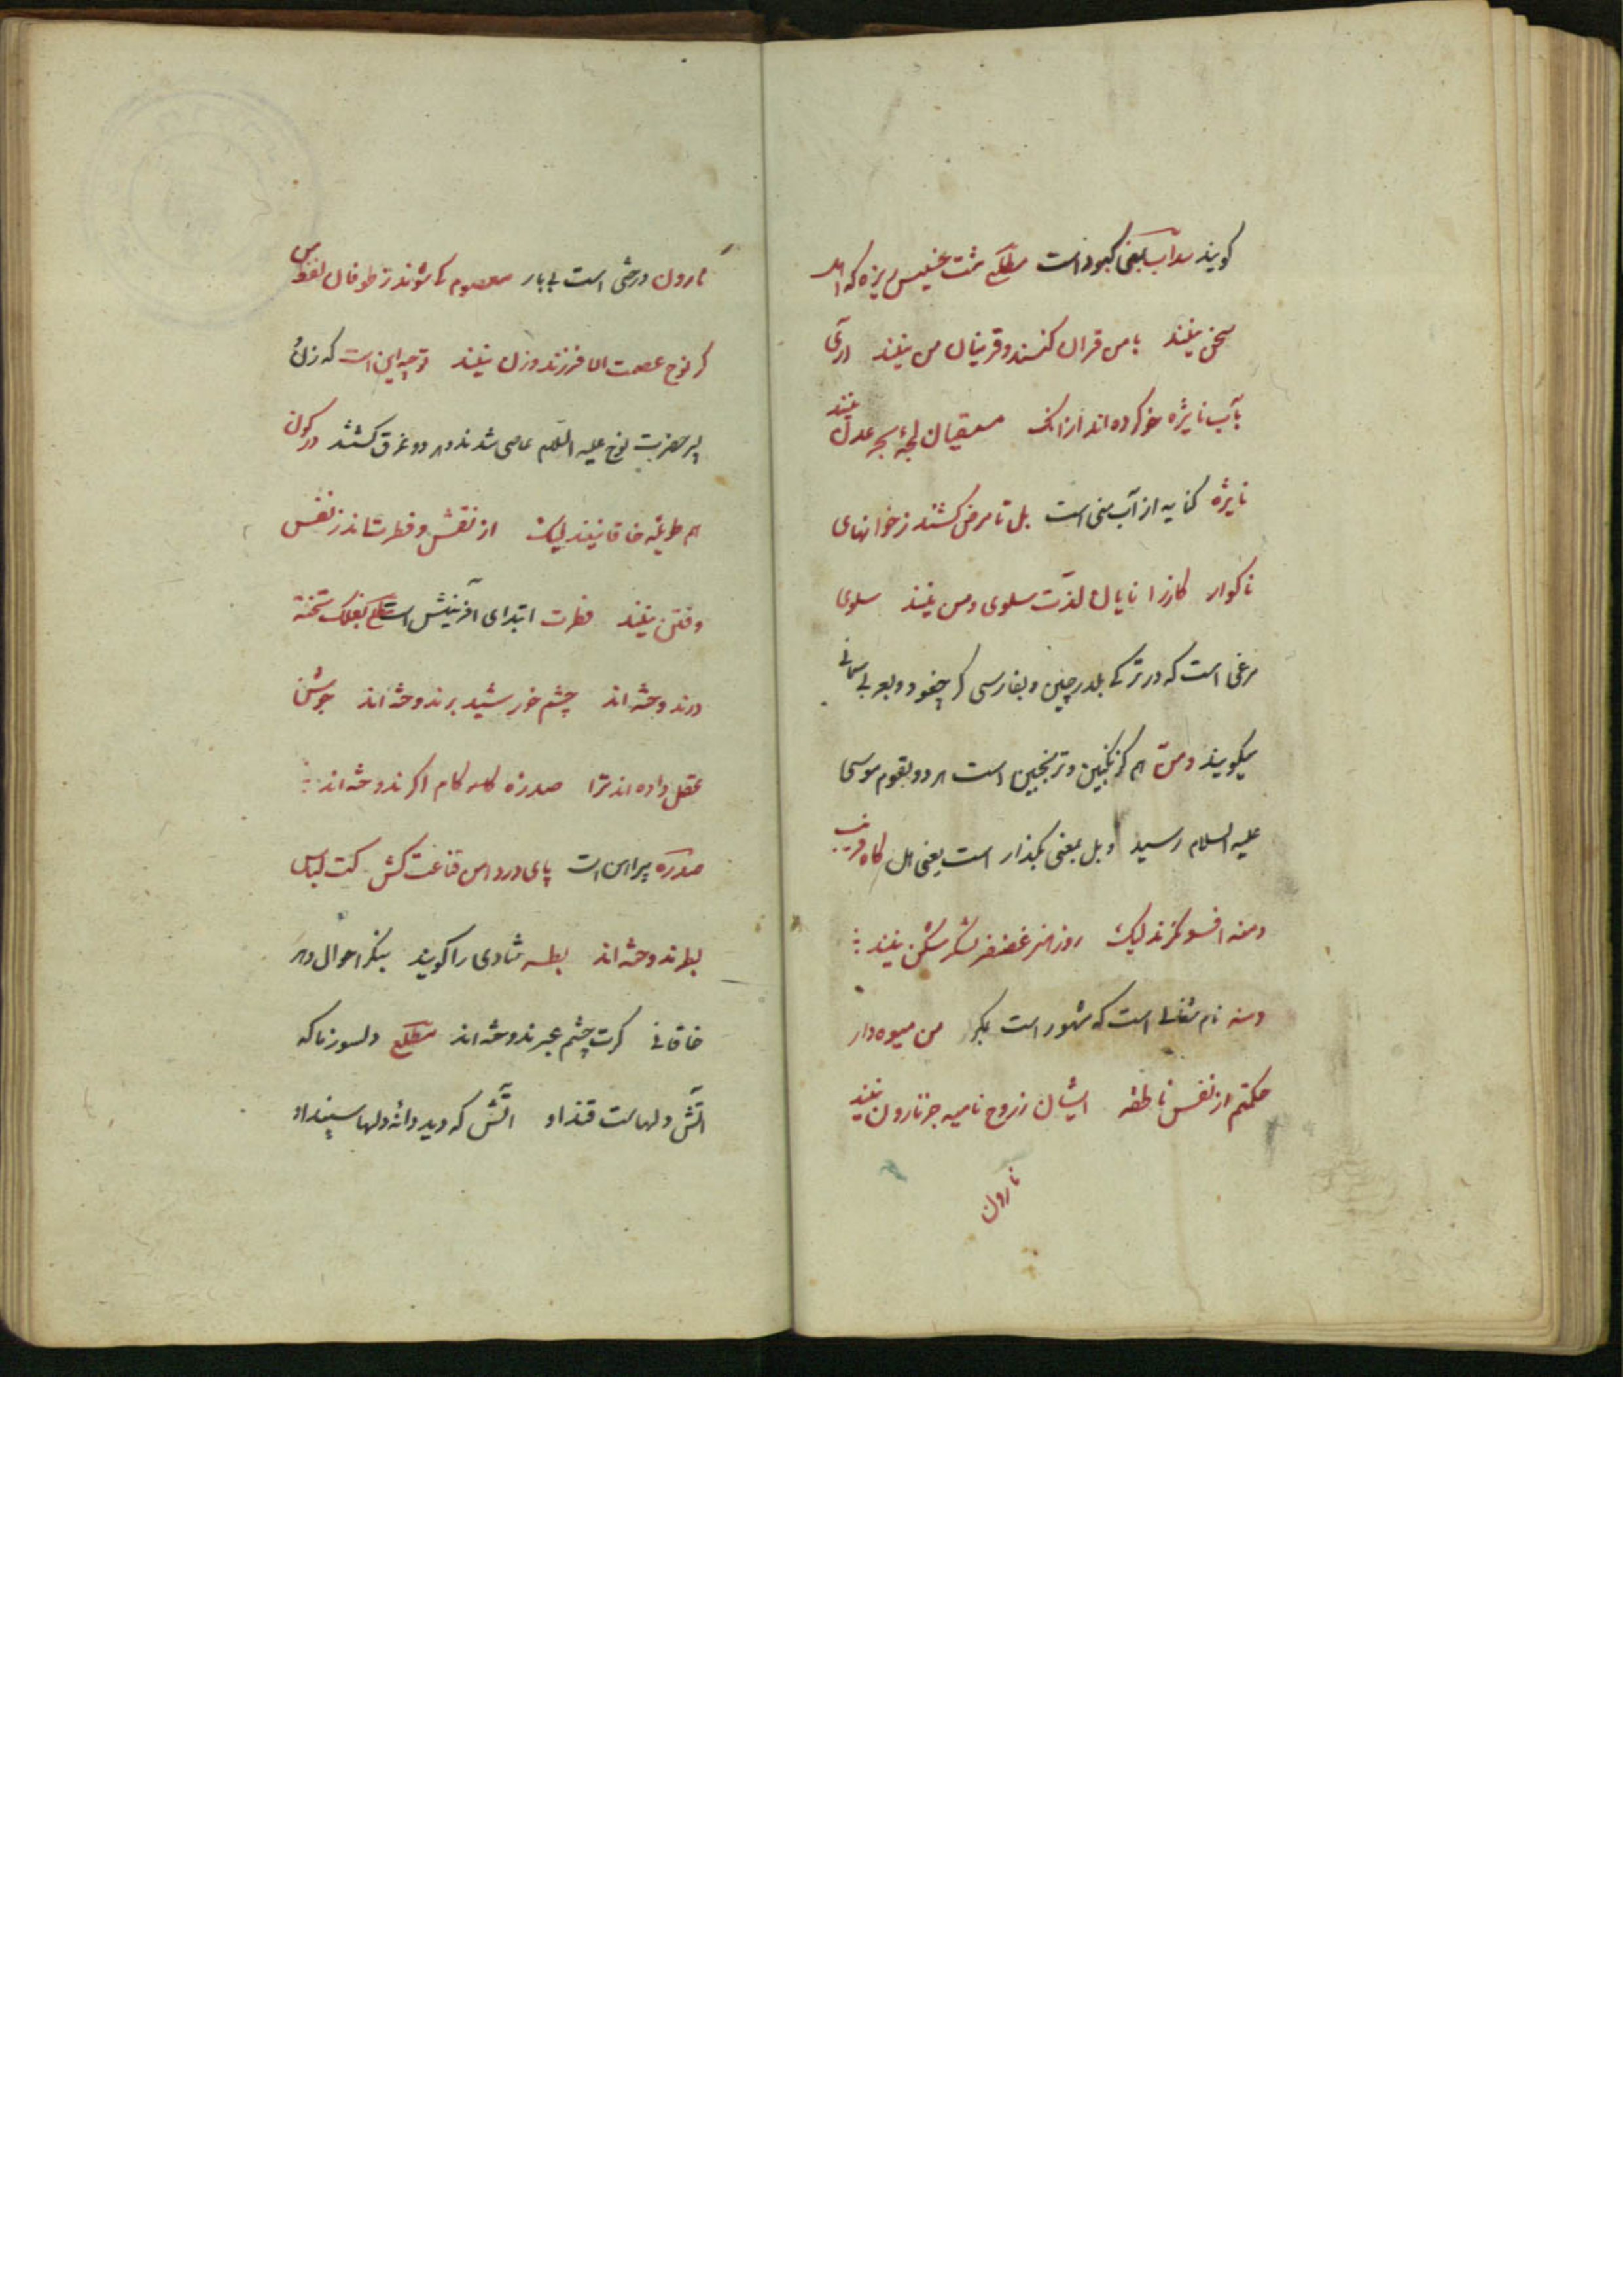 کویند سداب بمعنی کبود است مطلع مشت خسیس ریزه که اهل
سخن نیند با من قران کنند و قرینان من نیند آری
بآب نایژه خو کرده اند از انک مستقیان لجهٔ بحر عدن نیند
نایژه کنایه از آب منی است بل تا مرض کشند ز خوانهای
ناکوار کارزانیان لذت سلوی و من نیند سلوی
مرغی است که در ترکی بلدرچین و بفارسی کرچفو و بعربی سمانی
میکویند و من هم کزنکبین و ترنجبین است هر دو بقوم موسی
علیه السلام رسید و بل بمعنی بکذار است یعنی هل کاه فریب
دمنه افسونکرند لیک روز هنر غضنفر لشکر شکن نیند
دمنه نام شغالی است که مشهور است بمکر من میوه دار
حکمتم از نفس ناطقه ایشان ز روح نامیه جز نارون نیند
نارون
نارون درختی است بی بار معصوم کی شوند ز طوفان لفظ من
کز نوح عصمت الا فرزند و زن نیند توجیه این است که زن و
پسر حضرت نوح علیه السلام عاصی شدند و هر دو غرق کشتند در کون
هم طویلهٔ خاقانیند لیک از نقش و فطرتند ز نفس
و فتن نیند فطرت ابتدای آفرینش است مطلع بفلک تخته
درندوخته اند چشم خورشید برندوخته اند جوشن
عقل داده اند ترا صدرهٔ کام اکر ندوخته اند
صدره پیراهن است پای در دامن قناعت کش کت لباس
بطر ندوخته اند بطر شادی را کویند بنکر احوال دهر
خاقانی کرت چشم عبر ندوخته اند مطلع دلسوز ما که
آتش دلهاست قند او آتش که دید دانهٔ دلها سپند او